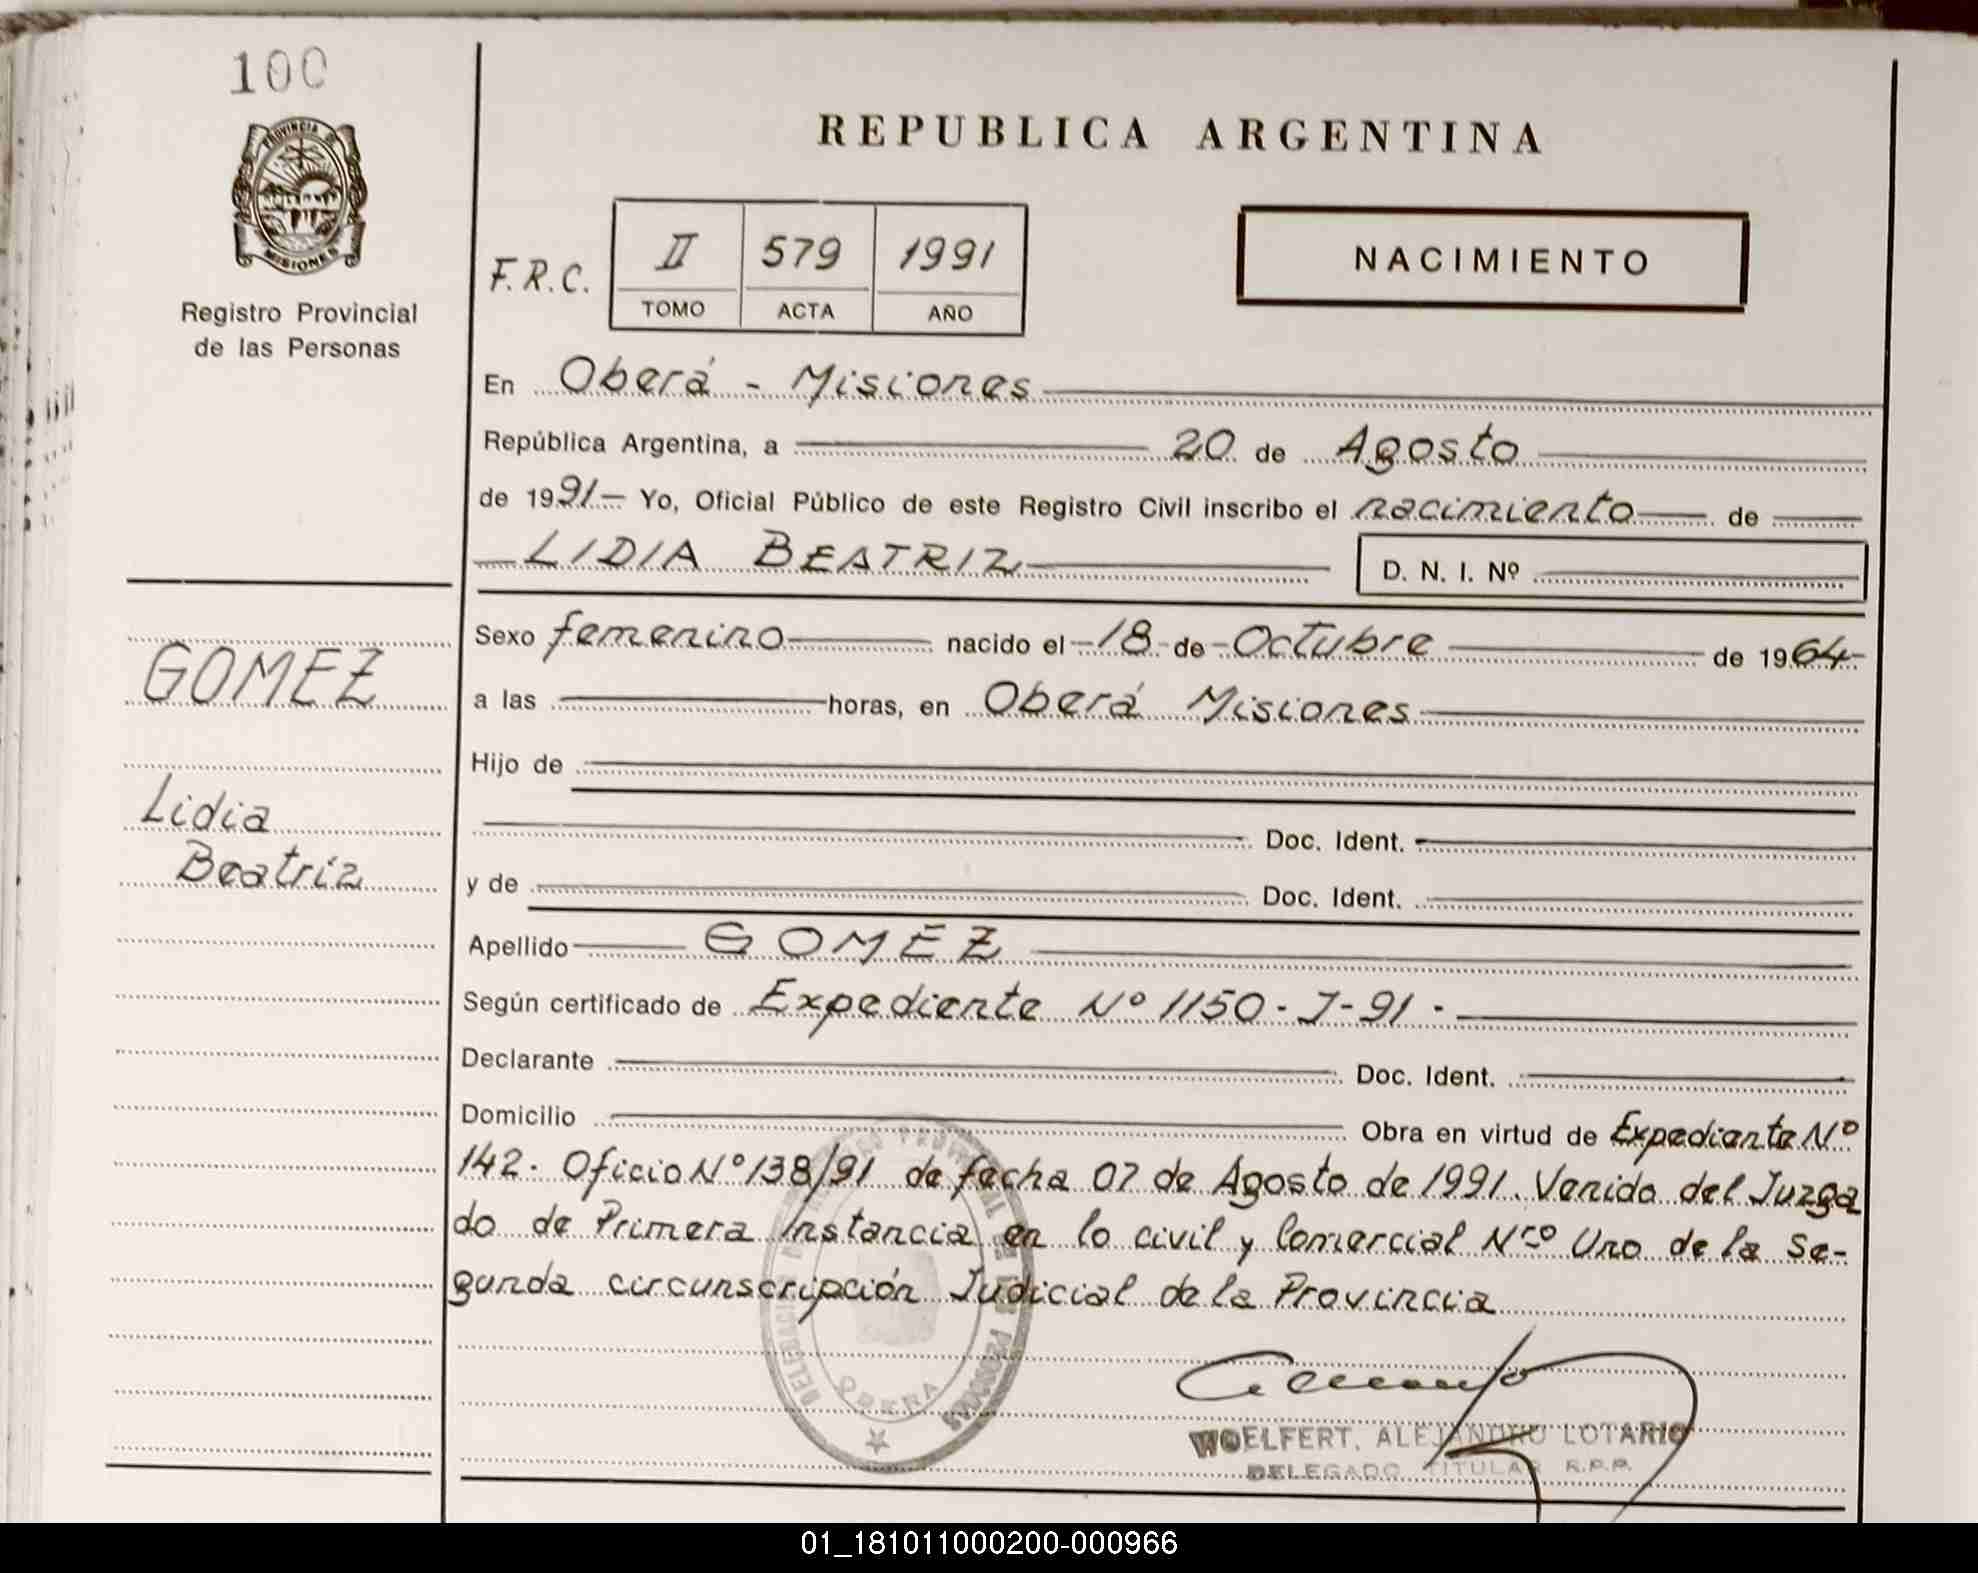 100
PROVINCIA DE
MISIONES
Registro Provincial
de las Personas
GOMEZ
Lidia
Beatriz
REPUBLICA ARGENTINA
F.R.C.
II 579 1991
TOMO ACTA AÑO
NACIMIENTO
En Oberá - Misiones
República Argentina, a 20 de Agosto
de 1991- Yo, Oficial Público de este Registro Civil inscribo el nacimiento de
LIDIA BEATRIZ
D. N. I. Nº
Sexo femenino nacido el -18- de - Octubre de 1964-
a las horas, en Oberá Misiones
Hijo de
Doc. Ident.
y de Doc. Ident.
Apellido GOMEZ
Según certificado de Expediente Nº 1150-J-91-
Declarante Doc. Ident.
Domicilio Obra en virtud de Expediente Nº
142. Oficio Nº 138/91 de fecha 07 de Agosto de 1991. Venido del Juzga
do de Primera Instancia en lo civil y Comercial Nro Uno de la Se-
gunda circunscripción Judicial de la Provincia
OBERA
WOELFERT, ALEJANDRO LOTARIO
DELEGADO TITULAR R.P.P.
01_181011000200-000966